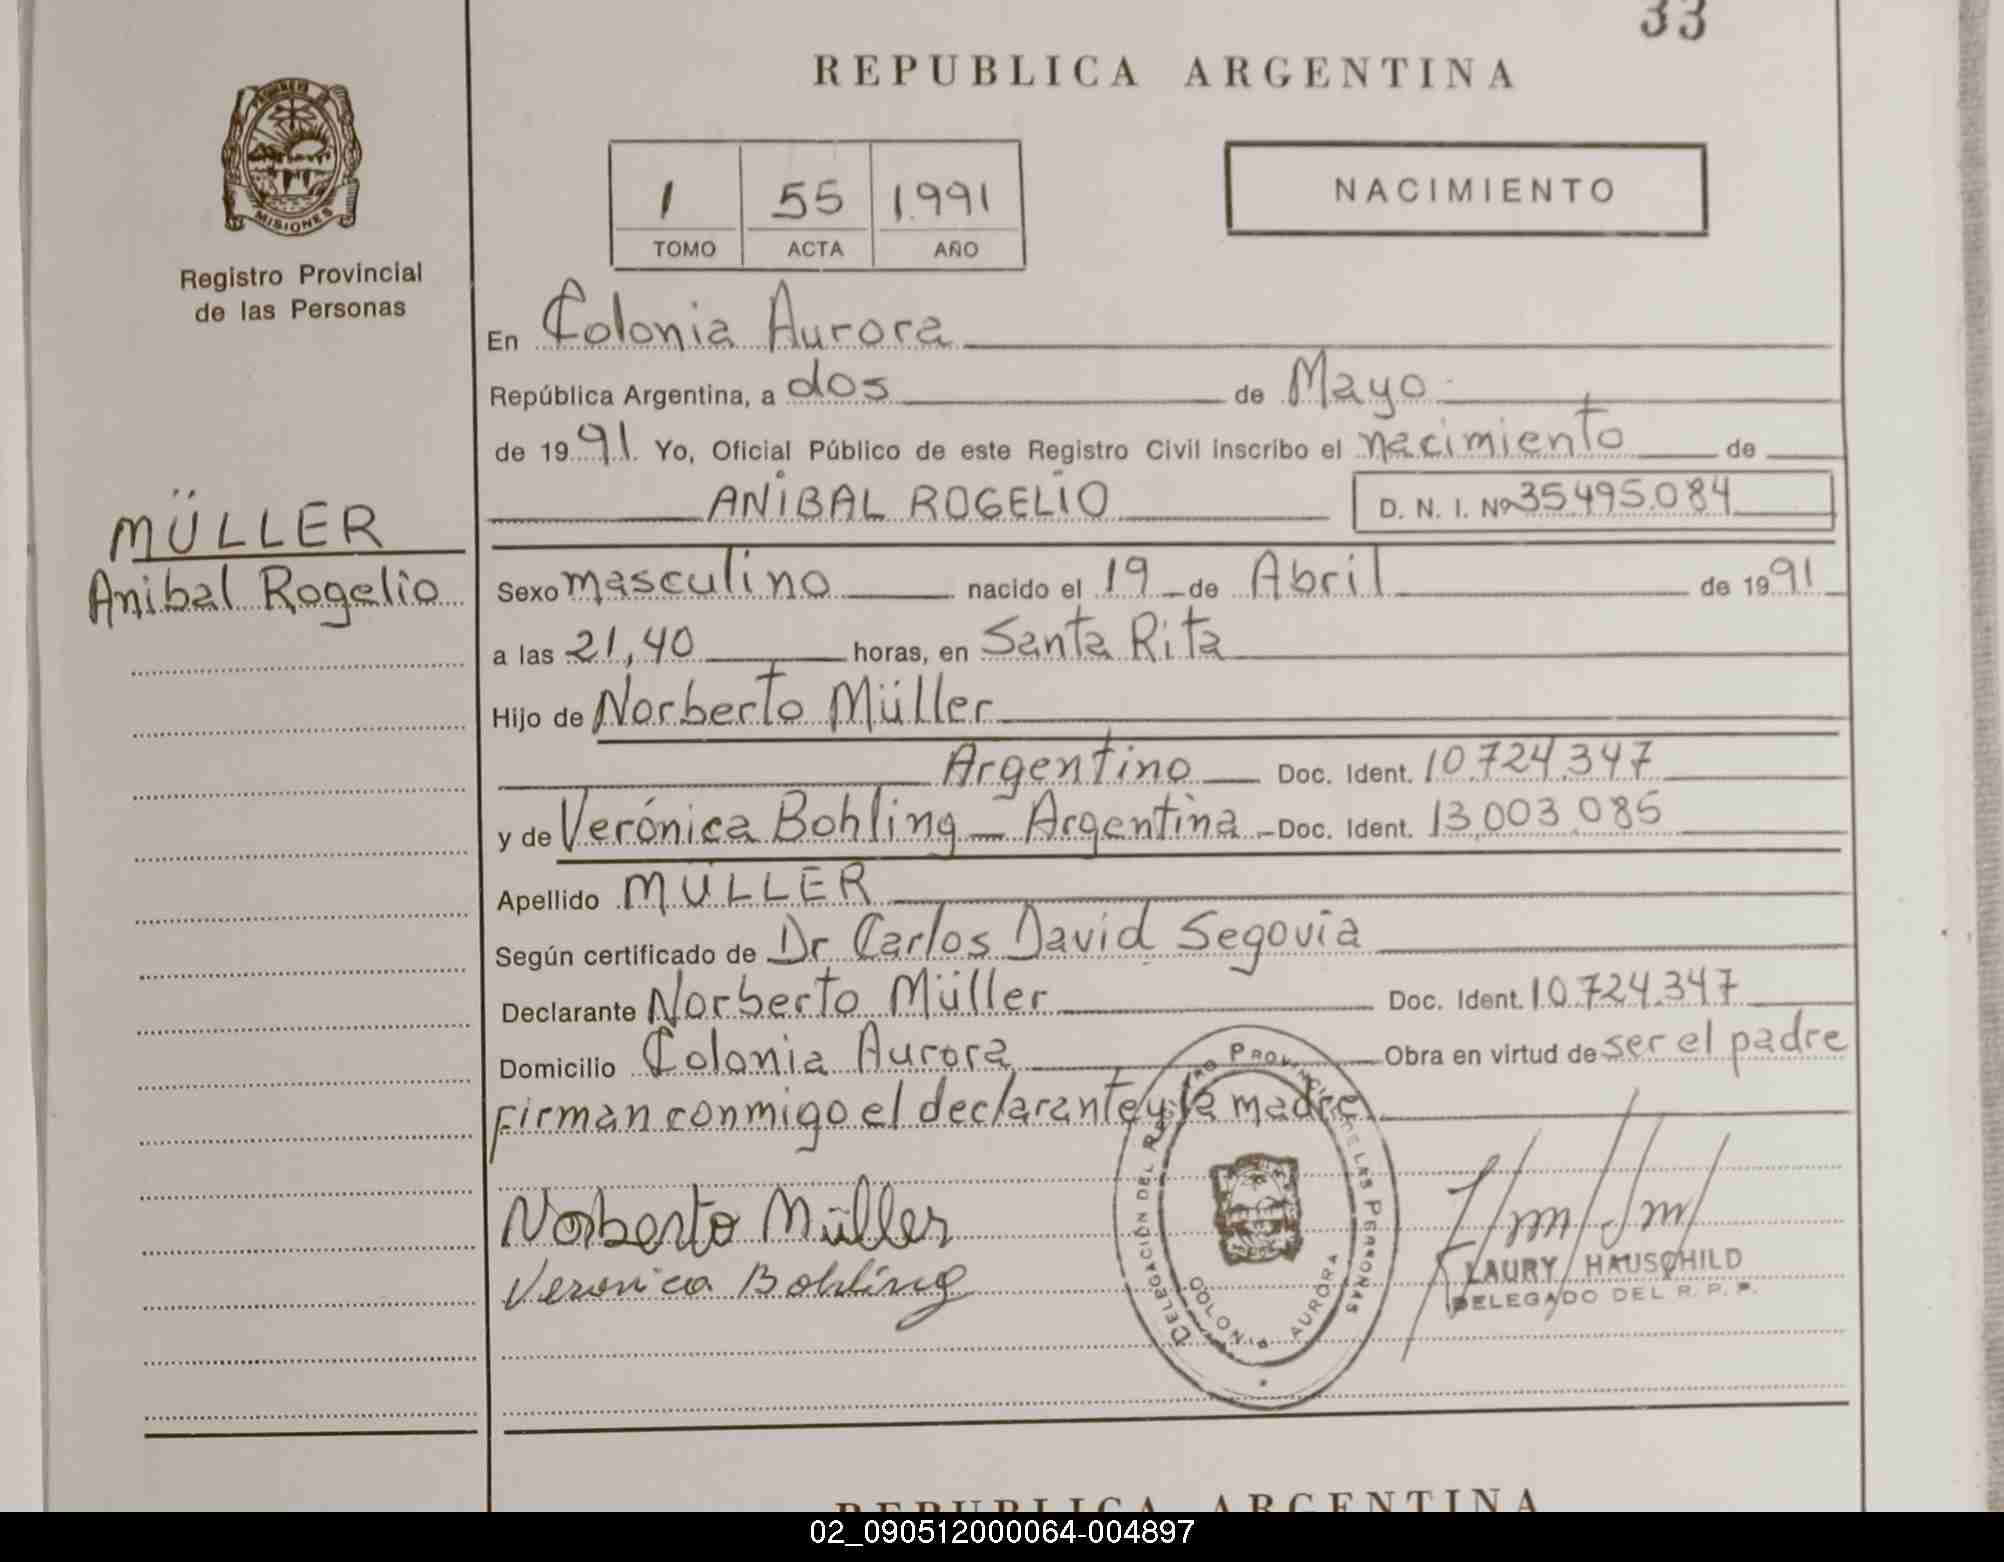 33
REPUBLICA ARGENTINA
MISIONES
Registro Provincial
de las Personas
1 55 1.991
TOMO ACTA AÑO
NACIMIENTO
En Colonia Aurora
República Argentina, a dos de Mayo
de 1991 Yo, Oficial Público de este Registro Civil inscribo el nacimiento de
ANIBAL ROGELIO D. N. I. Nº 35.495.084
MÜLLER
Anibal Rogelio
Sexo masculino nacido el 19 de Abril de 1991
a las 21,40 horas, en Santa Rita
Hijo de Norberto Müller
Argentino Doc. Ident. 10.724.347
y de Verónica Bohling - Argentina - Doc. Ident. 13.003.085
Apellido MÜLLER
Según certificado de Dr Carlos David Segovia
Declarante Norberto Müller Doc. Ident. 10.724.347
Domicilio Colonia Aurora Obra en virtud de ser el padre
Firman conmigo el declarante y la madre
Norberto Müller
Veronica Bohling
DELEGACIÓN DEL REGISTRO PROVINCIAL DE LAS PERSONAS
COLONIA AURORA
LAURY HAUSCHILD
DELEGADO DEL R. P. P.
REPUBLICA ARGENTINA
02_090512000064-004897